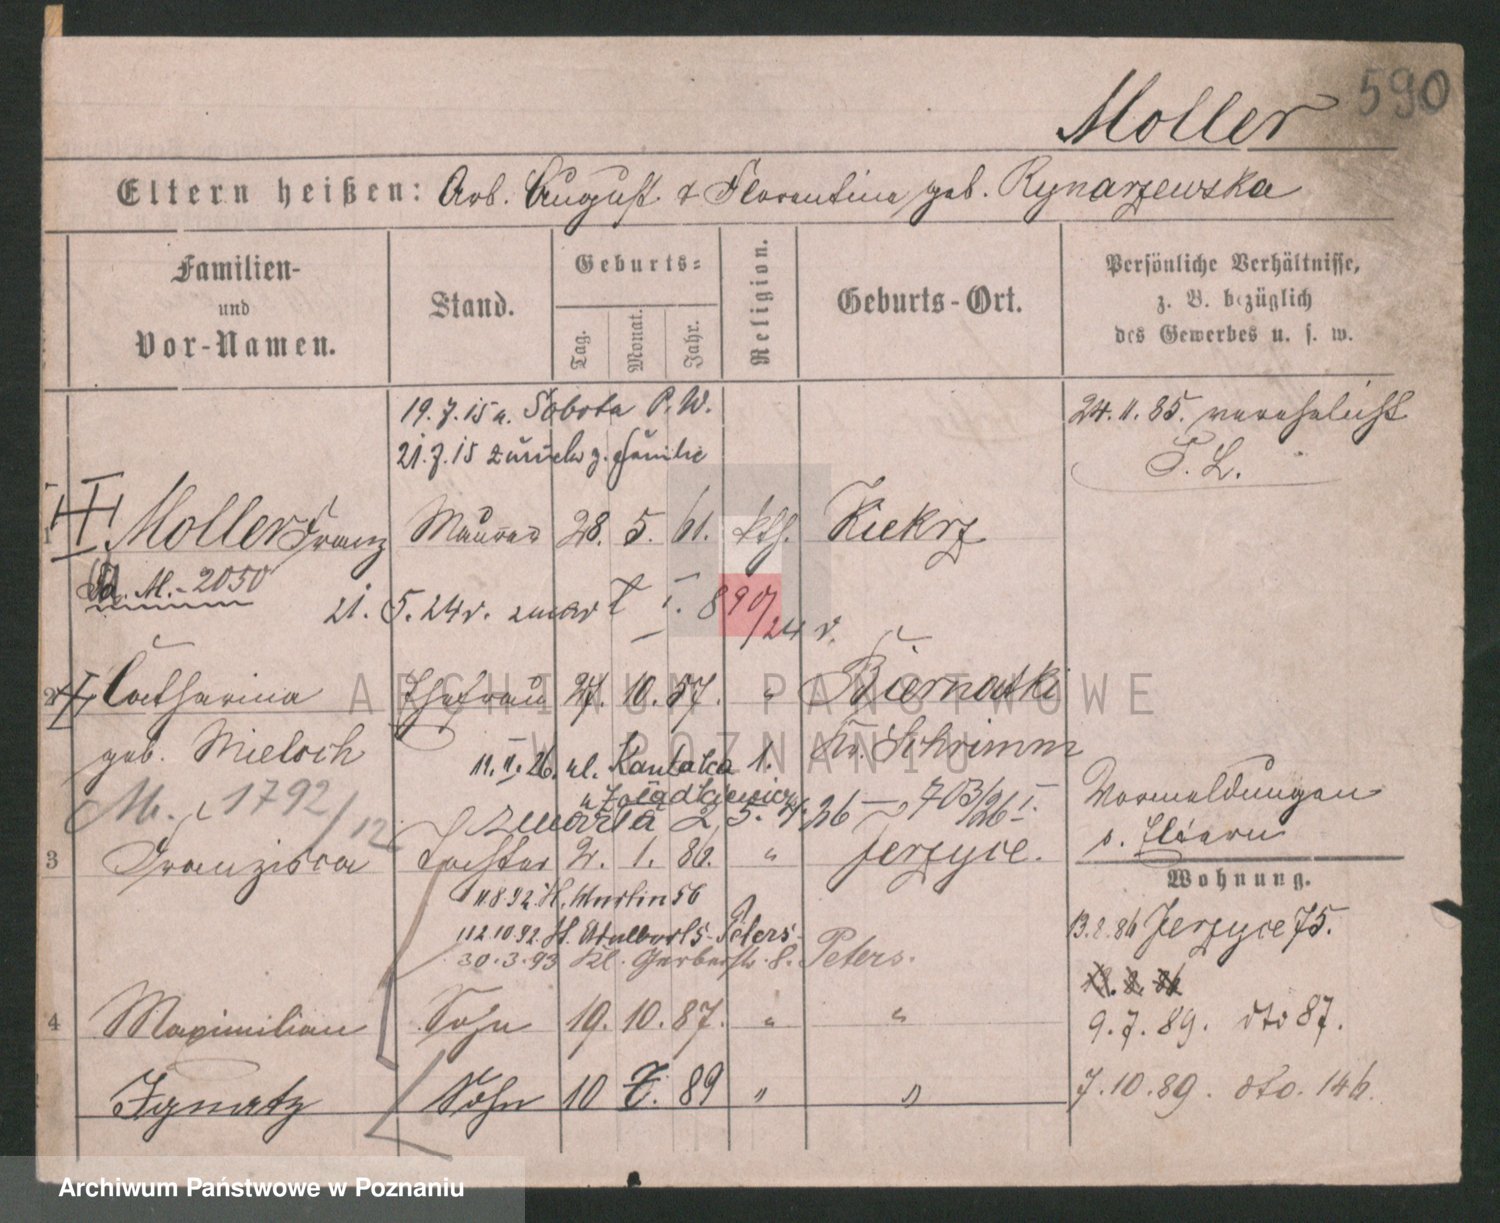 590
Moller
Eltern heißen: Arb. August & Florentine geb. Rynarzewska
Familien- und Vor-Namen.
Stand.
Geburts-
Tag.
Monat.
Jahr.
Religion.
Geburts-Ort.
Persönliche Verhältnisse, z. B. bezüglich des Gewerbes u. s. w.
19.7.15 n. Sobota P.W.
21.7.15 zurück z. Familie
24.11.85. verehelicht
T. L.
1 Moller Franz Maurer 28. 5. 61. kth. Kiekrz
M.- 2050
21. 5. 24 r. zmarł I. 890/24 r.
2 Catharina Ehefrau 27. 10. 57. " Biernatki
geb. Mieloch Kr. Schrimm
11. II. 26. ul. Kantaka 1.
M. 1792/12
zmarła 2. 5. 26 703/26 I.
Vormeldungen
s. Eltern
3 Franziska Tochter 2. 1. 86. " Jerzyce.
Wohnung.
11.8.92 St. Martin 56
12.10.92 St. Adalbert 5. Peters-
30.3.93 Kl. Gerberstr. 8. Peters.
13.2.86 Jerzyce 75.
4 Maximilian Sohn 19. 10. 87. " "
9.7.89. dto 87.
Ignatz Sohn 10 7. 89 " "
7.10.89. dto. 146.
ARCHIWUM PAŃSTWOWE
W POZNANIU
Archiwum Państwowe w Poznaniu